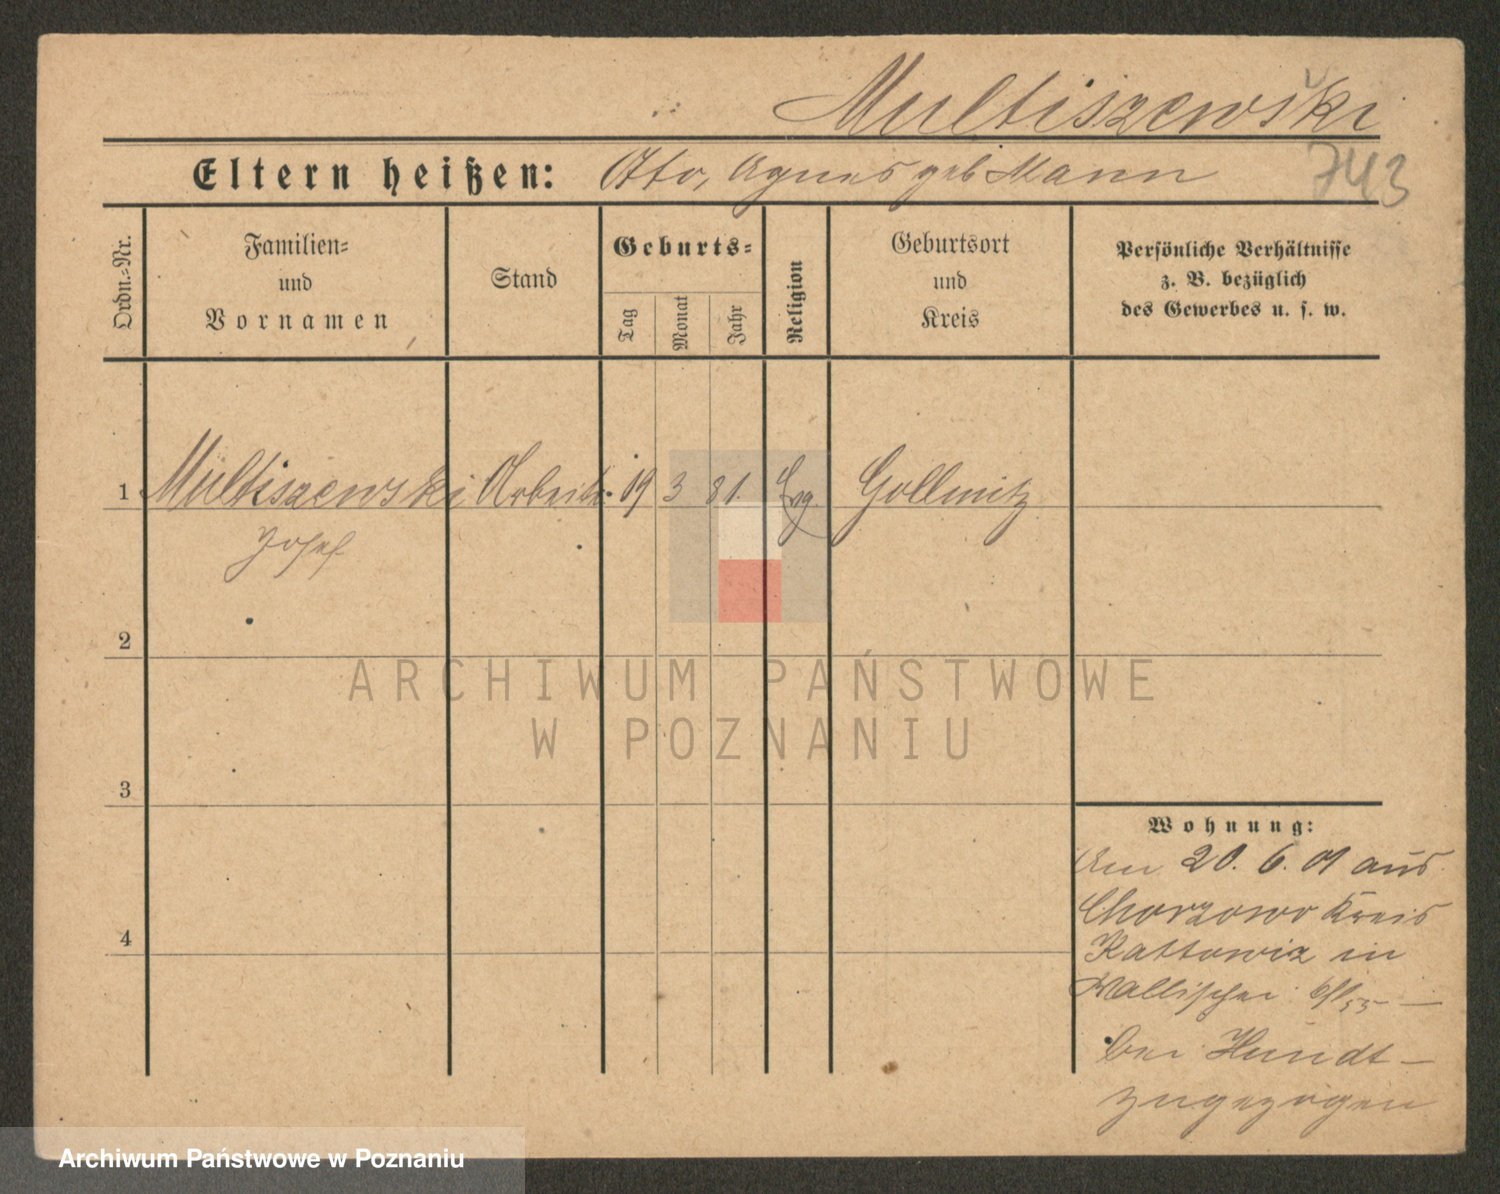 Multiszewski
Eltern heißen: Otto, Agnes geb Mann
743
Ordn.-Nr.
Familien-
und
Vornamen
Stand
Geburts-
Tag
Monat
Jahr
Religion
Geburtsort
und
Kreis
Persönliche Verhältnisse
z. B. bezüglich
des Gewerbes u. s. w.
1 Multiszewski Arbeiter 19 3 81. Evg. Gollmitz
Josef
2
3
4
ARCHIWUM PAŃSTWOWE
W POZNANIU
Wohnung:
Am 20. 6. 01 aus
Chorzowo Kreis
Kattowiz in
Wallischei 
bei Hundt –
zugezogen
Archiwum Państwowe w Poznaniu